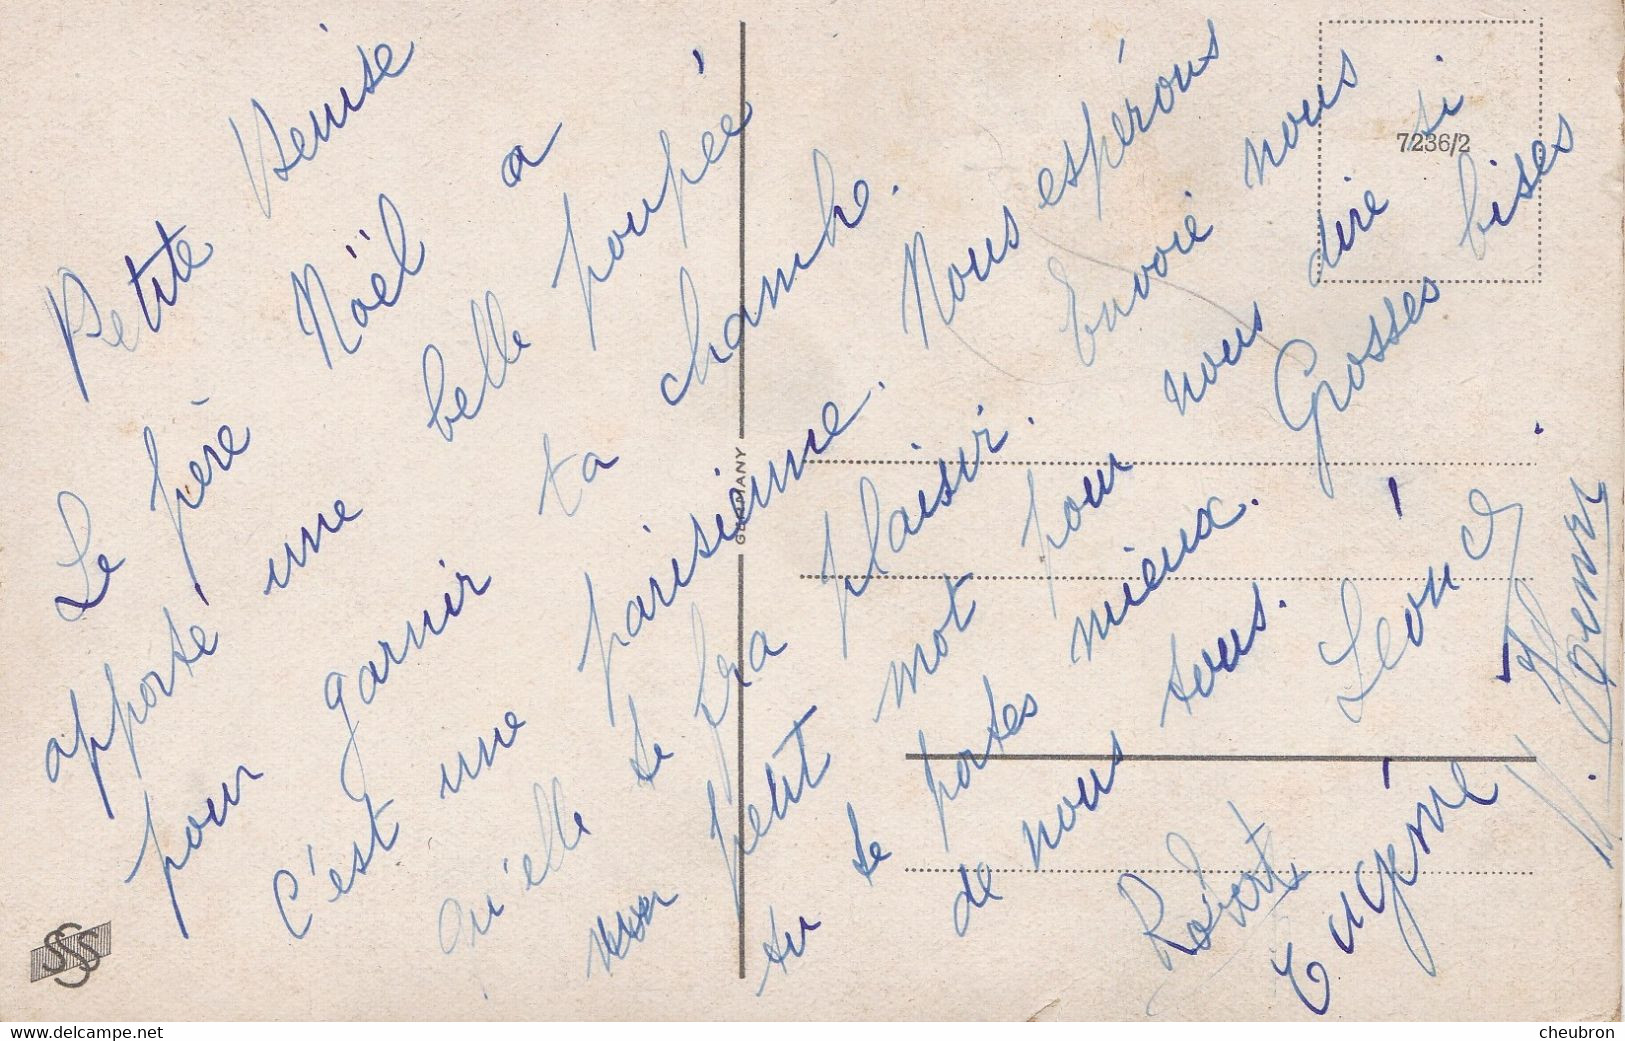 Petite Denise
Le père Noël a
apporté une belle poupée
pour garnir ta chambre.
C'est une parisienne. Nous espérons
qu'elle te fra plaisir. Envoie nous
un petit mot pour nous dire si
tu te portes mieux. Grosses bises
de nous tous. Léonce
Robert Eugène
GERMANY
7236/2
SSS
www.delcampe.net
cheubron